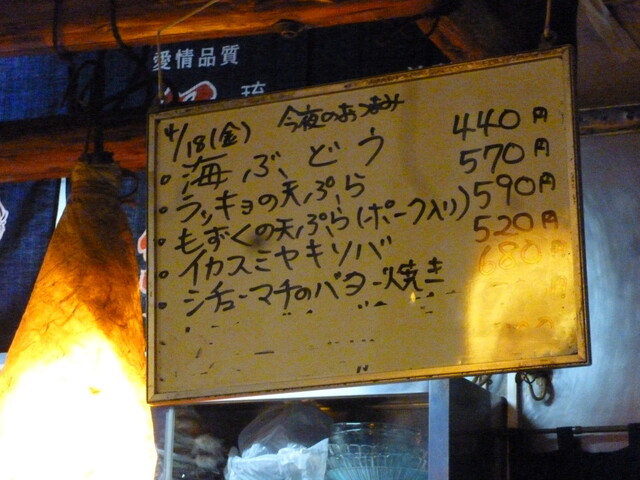 愛情品質
琉
4/18(金) 今夜のおつまみ
・海ぶどう 440円
・ラッキョの天ぷら 570円
・もずくの天ぷら(ポーク入り) 590円
・イカスミヤキソバ 520円
・シチューマチのバター焼き 680円